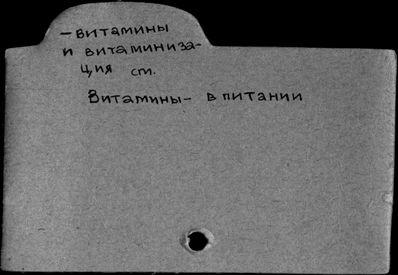 – витамины
и витаминиза-
ция ст.
Витамины – в питании